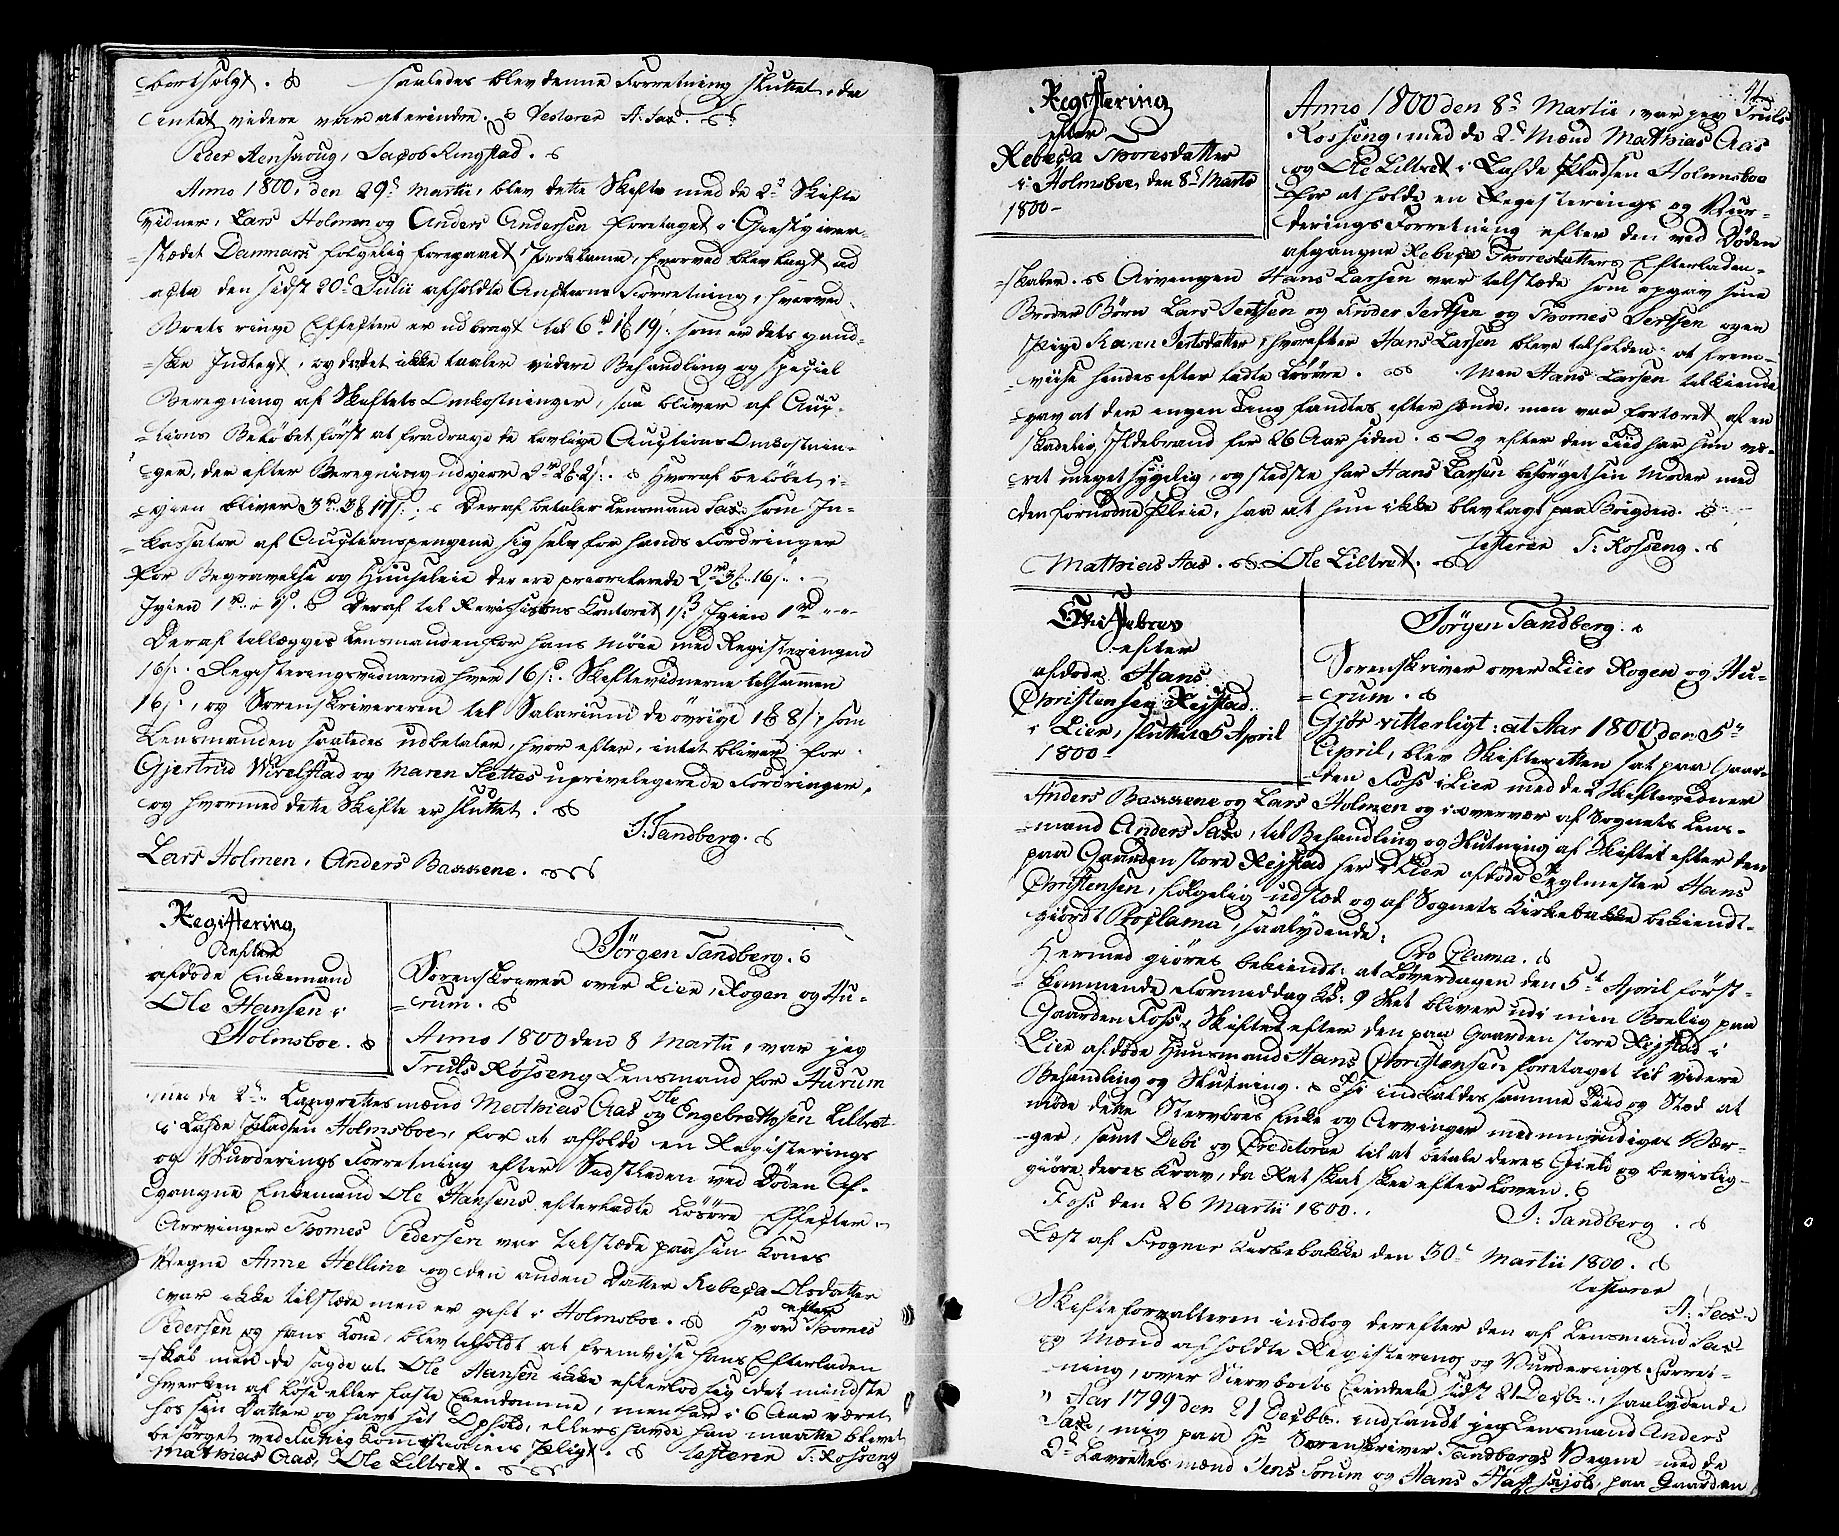 bortsolgt. Saaledes blev denne Forretning sluttet, da
intet videre var at erindre. Testerer A: Sax.
Peder Renskoug, Jacob Ringstad.
Anno 1800, den 29de Martii, blev dette Skifte med de 2de Skifte
Vidner, Lars Holmen og Anders Andersen foretaget i Giestgiver-
stædet Danmark følgelig foregaaet Proklama, hvorved blev lagt ad
acta den sidst 20de Julii afholdte Auctions Forretning, hvorved
Boets ringe Effecter er udbragt til 6rd 1 # 19s: som er dets gand-
ske Indtegt, og da det ikke taaler videre Behandling og speciel
Beregning af Skiftets Omkostninger, saa bliver af Auc-
tions Beløbet først at fradrage de lovlige Auctions Omkostnin-
ger, der efter Beregning udgiør 2rd 2 # 2s. Hvoraf beløbet i-
gien bliver 3rd 3 # 17s. Deraf betaler Lensmand Saxe som In-
kassator af Auctionspengene sig selv for hands Fordringer
for Begravelse og Huusleie der ere prioriterede 2rd 3 # 16s.
Igien 1rd " 1s. Deraf til Revisions Contoret 1s Igien 1rd " "
Deraf tillægges Lensmanden for hans Møie med Registeringen
16s. Registeringsvidnerne hver 16s. Skiftevidnerne tilsammen
16s, og Sorenskriveren til Salarium de øvrige 1 # 8s, som
Lensmanden saaledes udbetaler, hvor efter, intet bliver for
Gjertrud Wivelstad og Maren Slettes uprivelegerede Fordringer,
og hvormed dette Skifte er sluttet.
J: Tandberg.
Lars Holmen, Anders Barrene.
Registering
efter
afdøde Enkemand
Ole Hansen i
Holmsboe.
Jörgen Tandberg.
Sorenskriver over Lier, Rogen og Hu-
rum.
Anno 1800 den 8 Martii, var jeg
Truls Rosseng Lensmand for Hurum
med de 2de Laugrettesmænd Mathias Aas og Ole Engebrethsen Lilbret
i Lasde Pladsen Holmsboe, for at afholde en Registerings
og Vurderings Forretning efter Sadstleden ved Døden Af-
gangne Enkemand Ole Hansens efterladte Løsøre Effecter.
Arvinger Thomes Pedersen var tilstæde paa sin Kones
Vegne Anne Helline og den anden Datter Rebeca Olsdatter
var ikke tilstæde men er gift i Holmsboe. Hvor efter Thomes
Pedersen og hans Kone, blev tilholdt at fremvise hans Efterladen
skab men de sagde at Ole Hansen ikke efterlod sig det mindste
hverken af løse eller faste Eiendomme, men har i 6 Aar været
hos sin Datter og havt sit Ophold, ellers havde han maatte blevet
besørget ved Fattig Kommissions Pligt. Testerer T: Rosseng
Mathias Aas, Ole Lilbret.
71.
Registering
efter
Rebeca Thoresdatter
i Holmsboe, den 8de Marts
1800-
Anno 1800 den 8de Martii, var jeg Truls
Rosseng, med de 2de Mænd Mathias Aas
og Ole Lilbret i Lasde Pladsen Holmsboe
for at holde en Registerings og Vur-
derings Forretning efter den ved Døden
afgangne Rebeca Thoresdatters Efterladen-
skaber. Arvengen Hans Larsen var tilstæde som opgav sine
Broder Børn Lars Jertsen og Froder Jertsen og Thomes Jertsen og en
Pige Karen Jertsdatter, hvorefter Hans Larsen bleve tilholden at frem-
viise hendes efter ladte Løsøre. Men Hans Larsen tilkiende
gav at der ingen Ting fandtes efter hende, men var fortæret af en
skadelig Ildebrand for 26 Aar siden. Og efter den Tiid har hun væ-
ret meget sygelig, og stedste har Hans Larsen besørget sin Moder med
den fornødne Pleie, saa at hun ikke blev lagt paa Bygden.
Testerer T: Rosseng.
Mathias Aas. Ole Lilbret.
Skiftebrev
efter
afdøde Hans
Christensen Rejstad
i Lier, sluttet 5 April
1800-
Jörgen Tandberg.
Sorenskriver over Lier Rogen og Hu-
rum.
Gjør vitterligt: at Aar 1800 den 5te
April, blev Skifteretten sat paa Gaar-
den Foss i Lier med de 2 Skiftevidner
Anders Barrene og Lars Holmen og i overvær af Sognets Lens-
mand Anders Saxe, til Behandling og Slutning af Skiftet efter den
paa Gaarden store Rejstad her i Lier afdøde Teglmester Hans
Christensen, følgelig udstæd og af Sognets Kirkebakke bekiendt-
giørdt Proclama, saalydende:
Pro Clama.
Hermed giøres bekiendt: at Løverdagen den 5te April først-
kommende Formiddag Kl: 9 Slet bliver udi min Boelig paa
Gaarden Foss, Skiftet efter den paa Gaarden store Rejstad i
Lier afdøde Huusmand Hans Christensen foretaget til videre
Behandling og Slutning. Thi indkaldes samme Tiid og Stæd at
møde dette Sterboes Enke og Arvinger med umyndiges Vær-
ger, samt Debi og Creditorer til at betale deres Gield og bevislig-
giøre deres Krav, da Ret skal skee efter Loven.
Foss den 26 Martii 1800. J: Tandberg.
Læst af Frogner Kirkebakke den 30te Martii 1800.
testerer
A: Sax.
Skifteforvalteren indtog derefter den af Lensmand Sax
og Mænd afholdte Registering og Vurderings Forret-
ning, over Sterboets Eiendeele sidst 21 Decbr., saalydende
" Aar 1799 den 21 Decbr. indfandt jeg Lensmand Anders
Saxe, mig paa Hr Sorenskriver Tandbergs Vegne med de
2de Lavrettesmænd Jens Sorum og Hans Hassfjold, paa Gaarden